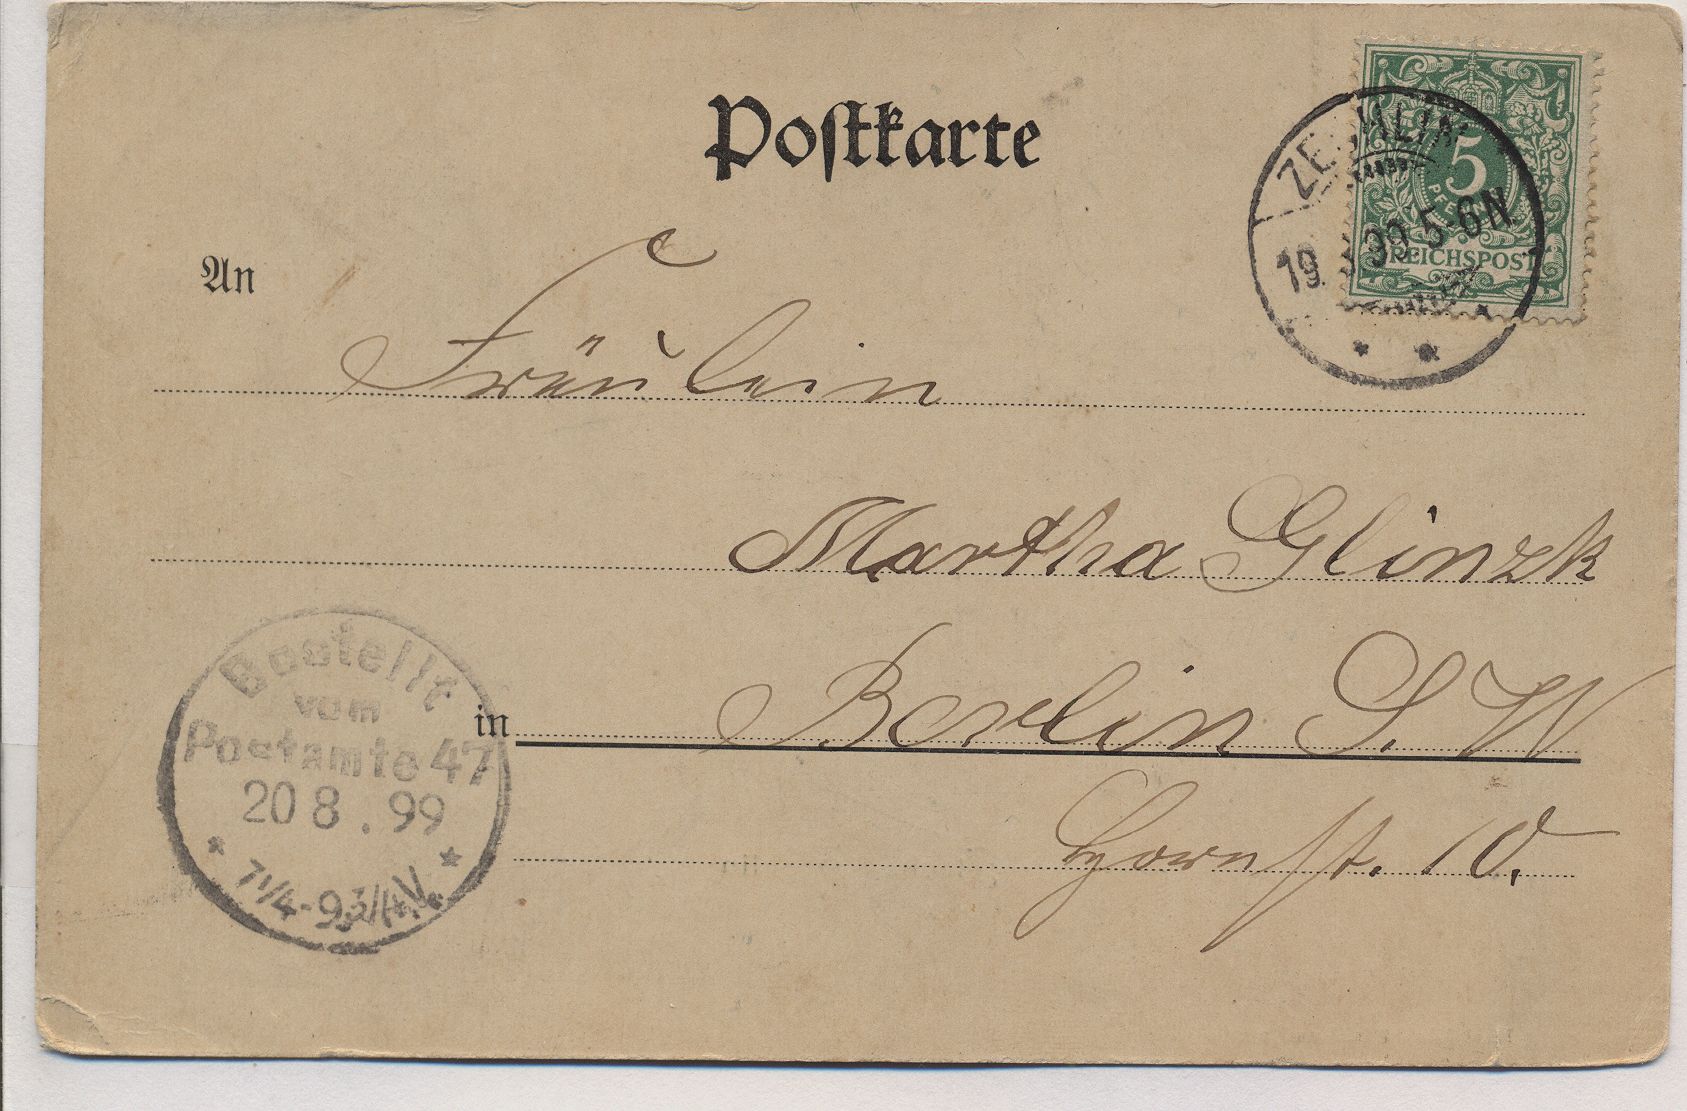 Postkarte
5
PFENNIG
REICHSPOST
19. 99 5-6N.
An
Fräulein
Martha Glinzk
in Berlin S.W
Hornstr. 10.
Bestellt
vom
Postamte 47
20 8 . 99
* 7¼-9½V. *